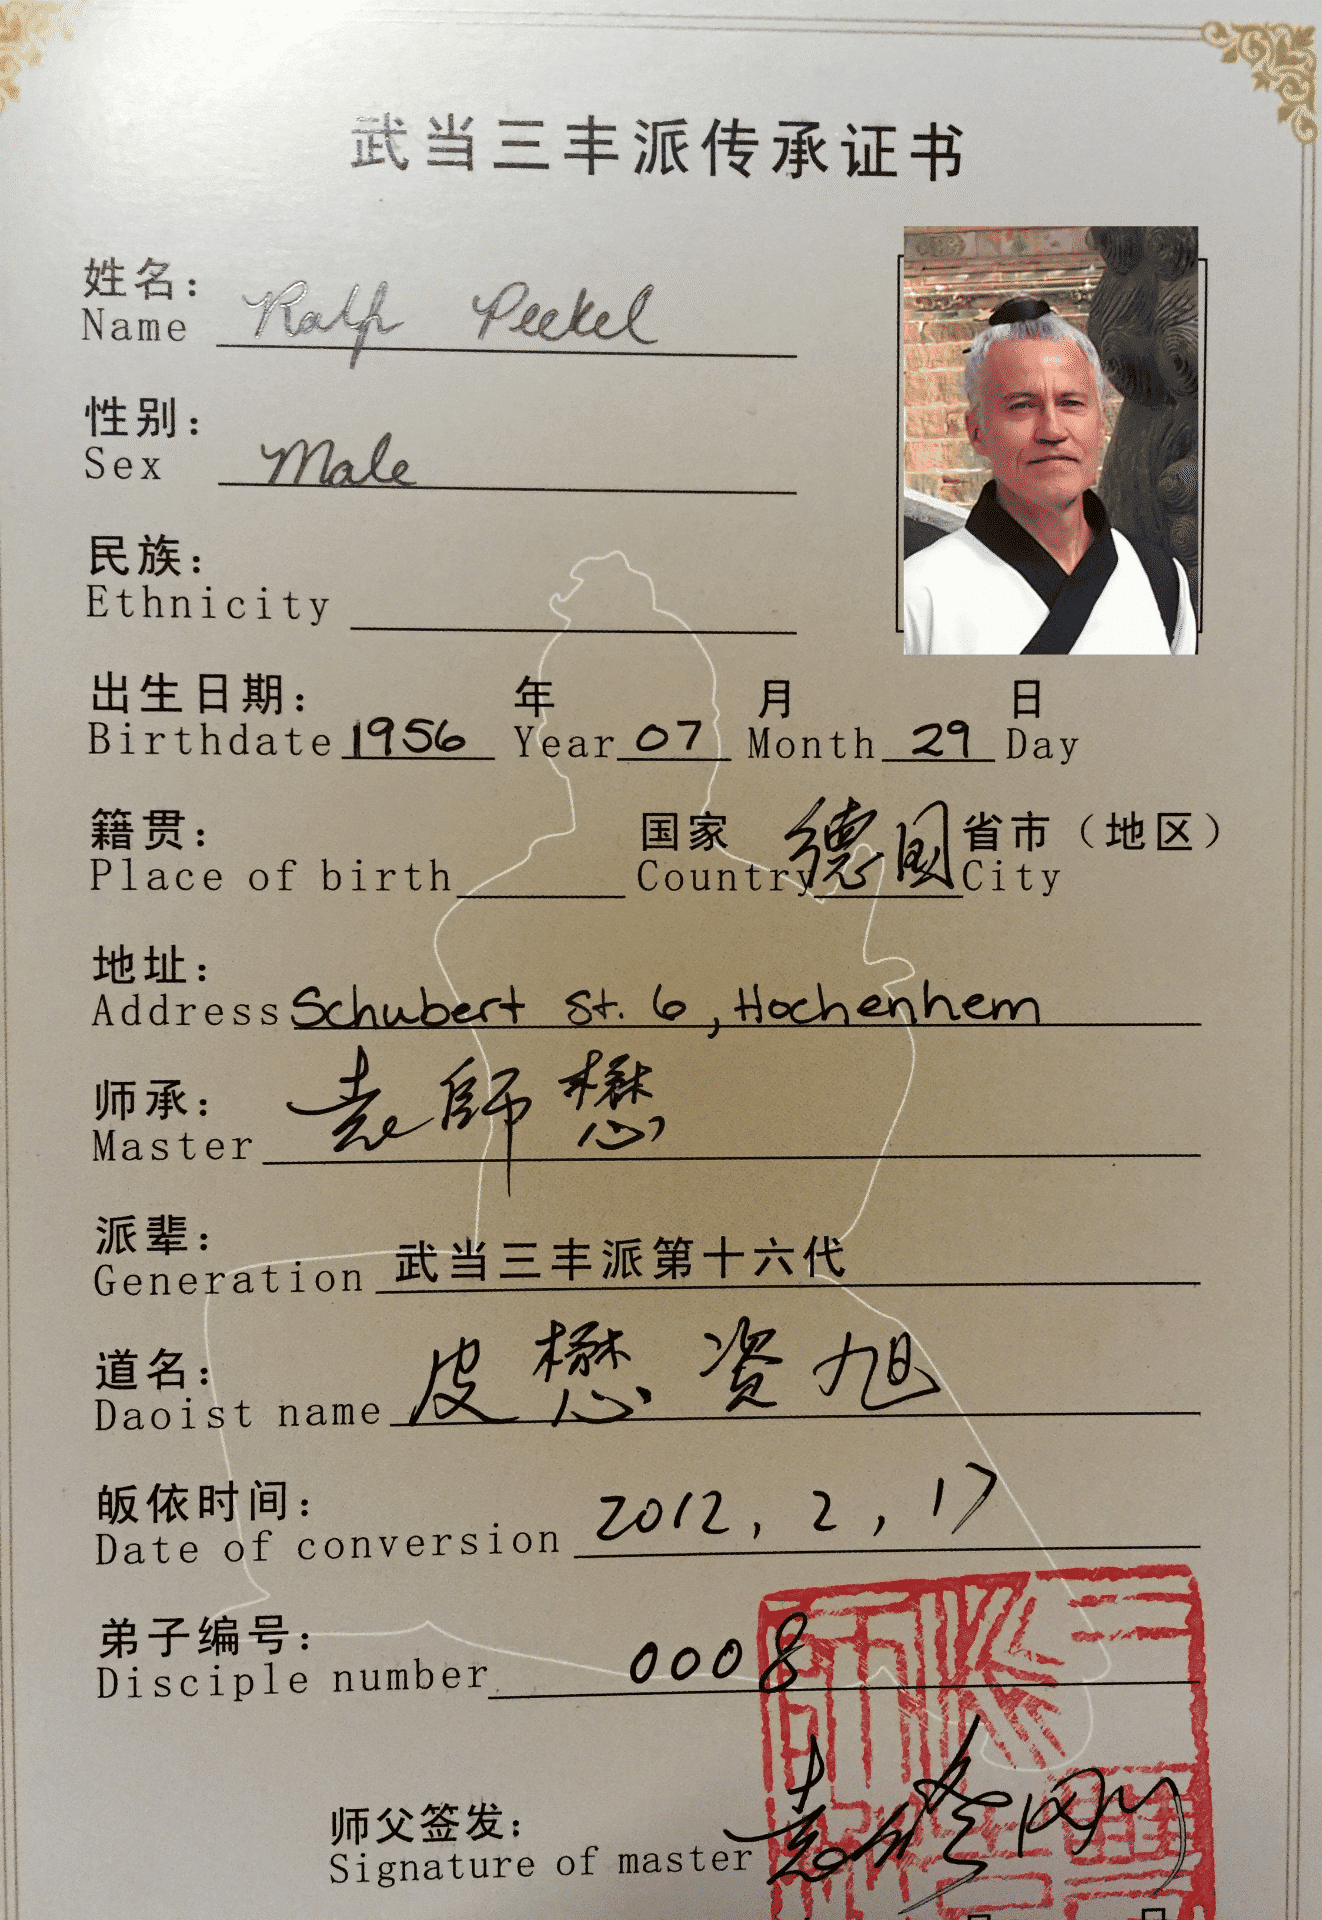 武当三丰派传承证书
姓名：
Name Ralp Peekel
性别：
Sex Male
民族：
Ethnicity
出生日期： 年 月 日
Birthdate 1956 Year 07 Month 29 Day
籍贯： 国家 德国 省市（地区）
Place of birth Country City
地址：
Address Schubert St. 6, Hochenhem
师承：
Master 袁師懋
派辈：
Generation 武当三丰派第十六代
道名：
Daoist name 皮懋资旭
皈依时间：
Date of conversion 2012, 2, 17
弟子编号：
Disciple number 0008
师父签发：
Signature of master 袁修刚
月 日